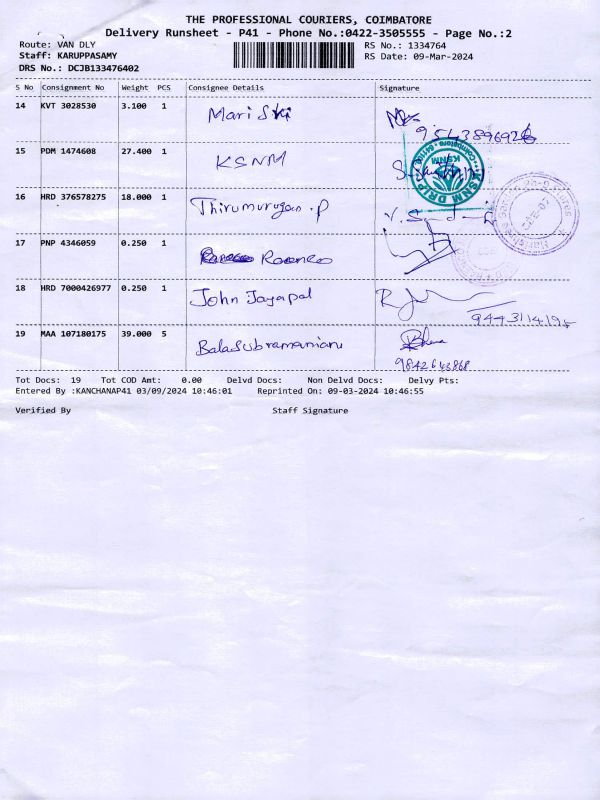 THE PROFESSIONAL COURIERS, COIMBATORE
Delivery Runsheet - P41 - Phone No.:0422-3505555 - Page No.:2
Route: VAN DLY RS No.: 1334764
Staff: KARUPPASAMY RS Date: 09-Mar-2024
DRS No.: DCJB133476402
S No Consignment No Weight PCS Consignee Details Signature
14 KVT 3028530 3.100 1 Mari Ski
9543896926
15 PDM 1474608 27.400 1 KSNM
KSNM DRIP Coimbatore KSNM
16 HRD 376578275 18.000 1 Thirumurugan .P
17 PNP 4346059 0.250 1 Roonco
18 HRD 7000426977 0.250 1 John Jayapal
19 MAA 107180175 39.000 5 Balasubramaniam
9842643868
Tot Docs: 19 Tot COD Amt: 0.00 Delvd Docs: Non Delvd Docs: Delvy Pts:
Entered By :KANCHANAP41 03/09/2024 10:46:01 Reprinted On: 09-03-2024 10:46:55
Verified By Staff Signature